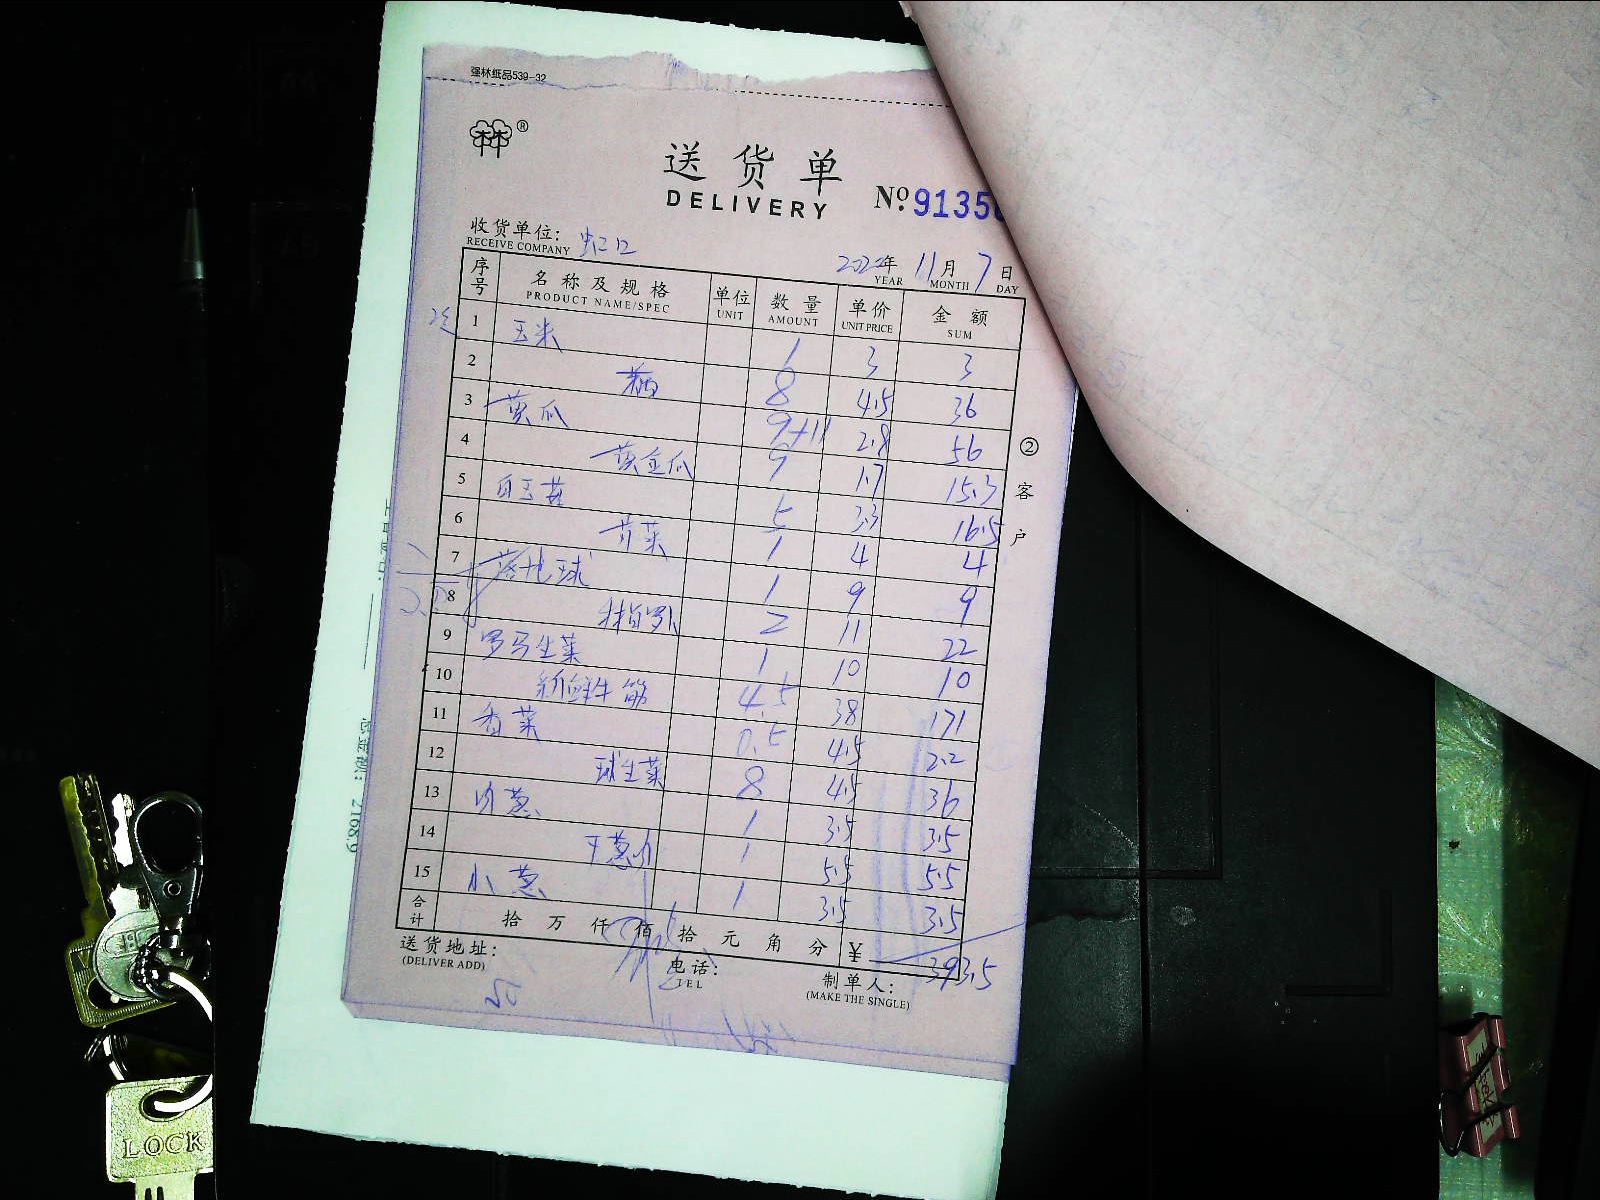 强林纸品539-32
®
送货单
DELIVERY
No 9135
收货单位: 虹口
RECEIVE COMPANY
2022年 11月 7日
YEAR MONTH DAY
序号 名称及规格 单位 数量 单价 金额
PRODUCT NAME/SPEC UNIT AMOUNT UNIT PRICE SUM
1 玉米 1 3 3
2 8 4.5 36
3 黄瓜 9+11 2.8 56
4 黄金瓜 9 1.7 15.3
5 白玉菇 5 3.3 16.5
6 芹菜 1 4 4
7 落地球 1 9 9
8 2 11 22
9 罗马生菜 1 10 10
10 新鲜牛筋 4.5 38 171
11 香菜 0.5 4.5 2.2
12 球生菜 8 4.5 36
13 1 3.5 3.5
14 干葱 1 5.5 5.5
15 小葱 1 3.5 3.5
合计 拾万仟佰拾元角分 ¥ 393.5
送货地址: 电话: 制单人:
(DELIVER ADD) TEL (MAKE THE SINGLE)
② 客户
总金额: 2168.9
LOCK